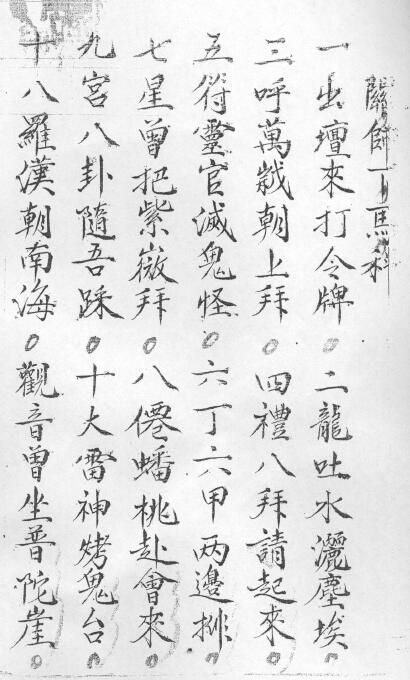 關師下馬杉
一出壇來打令牌。二龍吐水灑塵埃。
三呼萬歲朝上拜。四禮八拜請起來。
五符靈官滅鬼怪。六丁六甲两邊排。
七星曾把紫微拜。八僊蟠桃赴會來。
九宮八卦隨吾踩。十大雷神烤鬼台。
十八羅漢朝南海。觀音曾坐普陀崖。